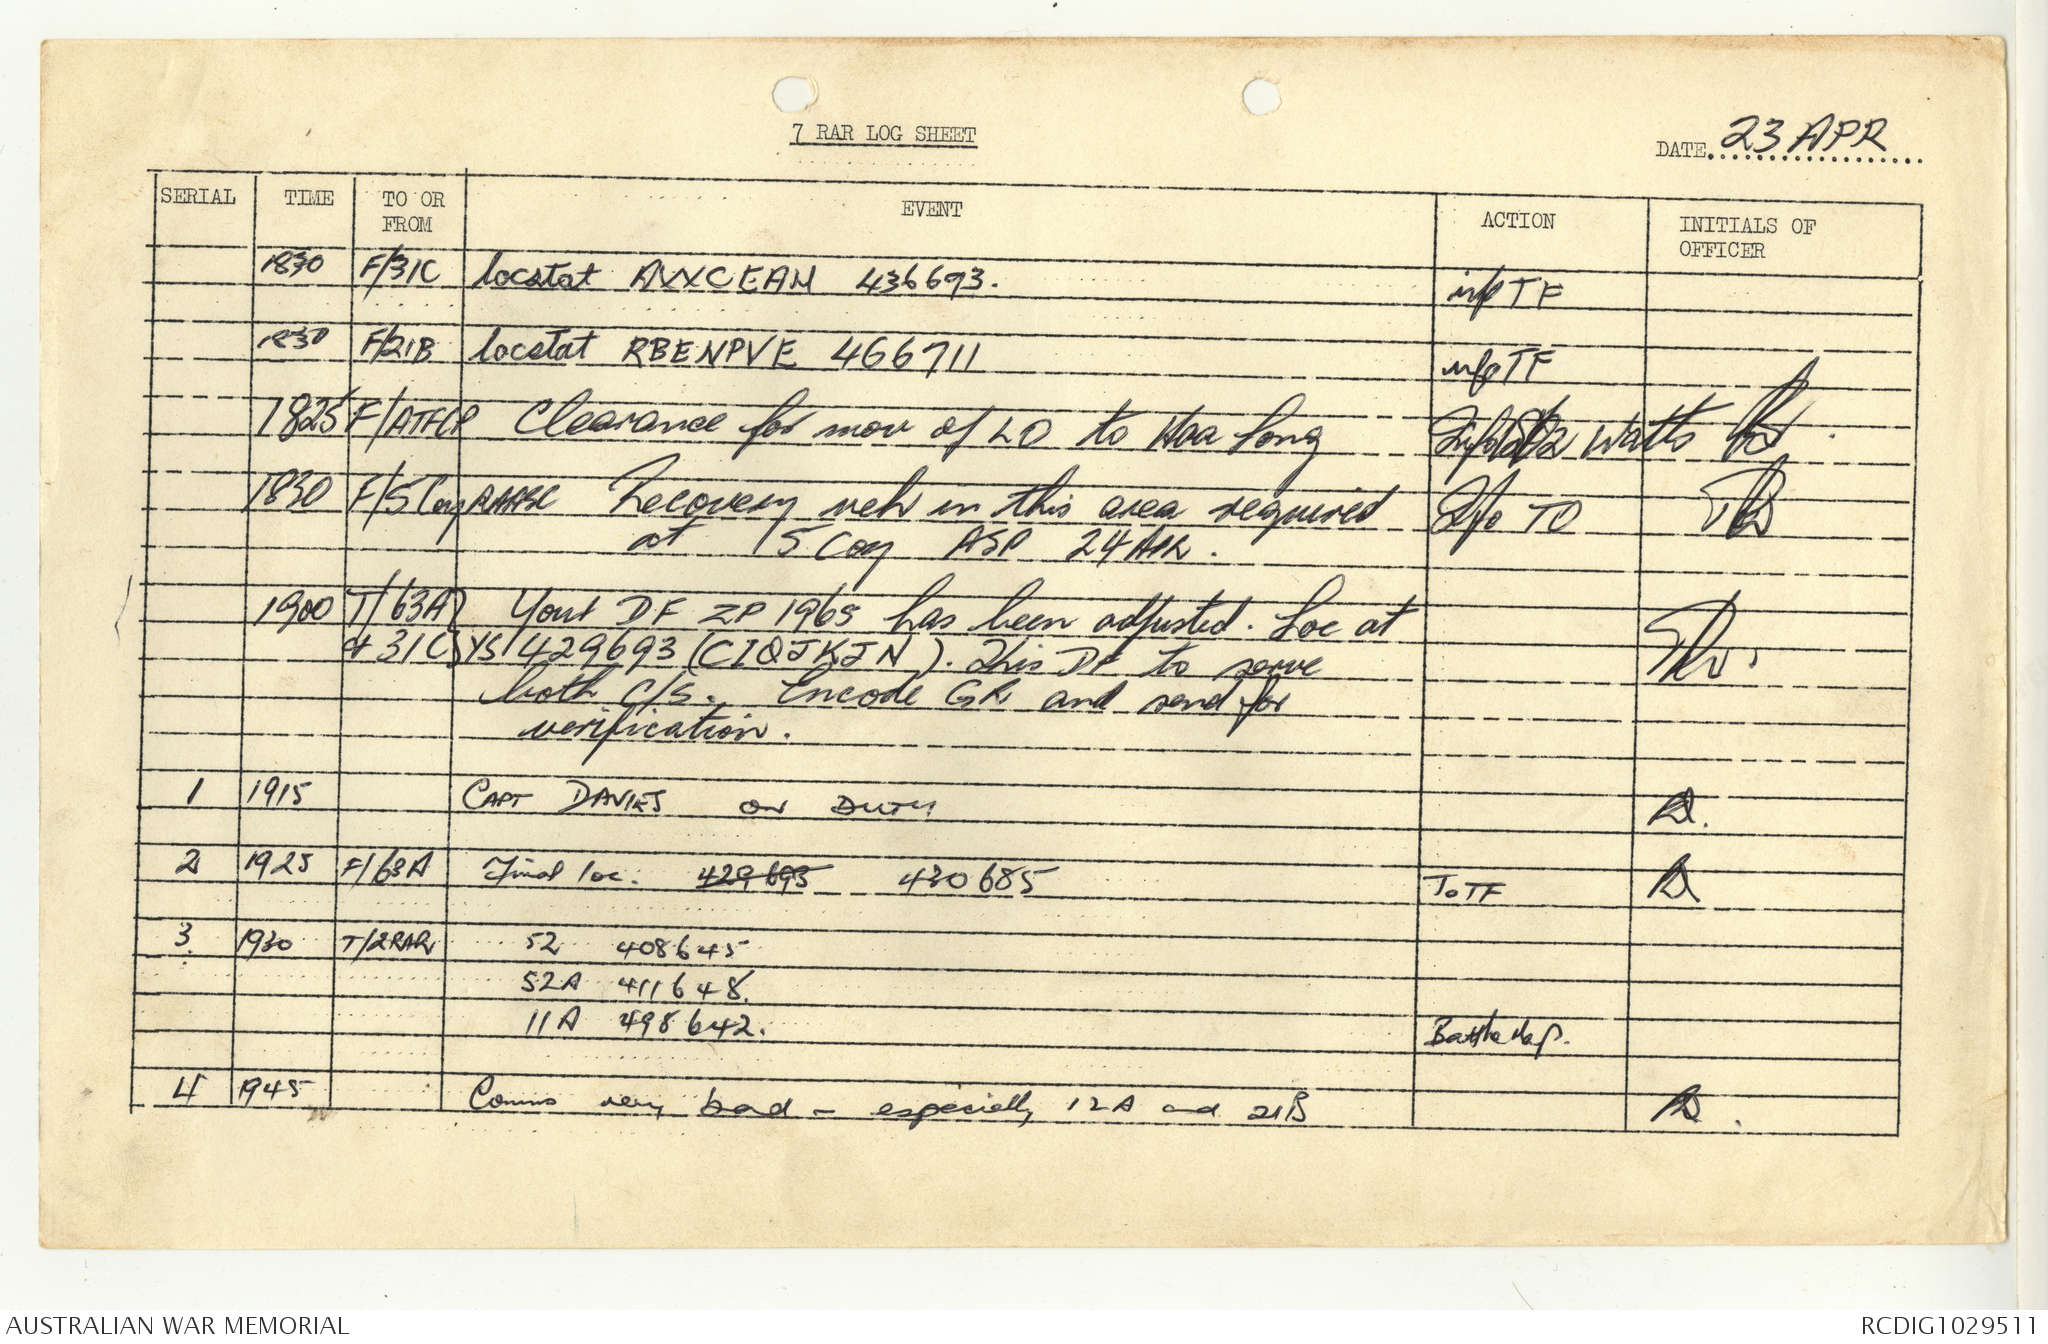 7 RAR LOG SHEET
DATE 23 APR
SERIAL TIME TO OR FROM EVENT ACTION INITIALS OF OFFICER
1830 F/31C locstat AVXCEAM 436693. info TF
1830 F/21B locstat RBENPVE 466711 info TF
1825 F/ATFCP Clearance for mov of LO to Hoa Long Watts
1830 F/5 Coy RAASC Recovery veh in this area required Info TO
at 5 Coy ASP 24 APR.
1900 T/63A Your DF ZP 1965 has been adjusted. Loc at
& 31C YS 429693 (CIQJKJN). This DF to serve
both C/S. Encode GR and send for
verification.
1 1915 CAPT DAVIES ON DUTY
2 1925 F/63A Final loc. 429693 430685 To TF
3 1930 T/2RAR 52 408645
52A 411648.
11A 498642. Battle Map.
4 1945 Comms very bad - especially 12A and 21B
AUSTRALIAN WAR MEMORIAL RCDIG1029511